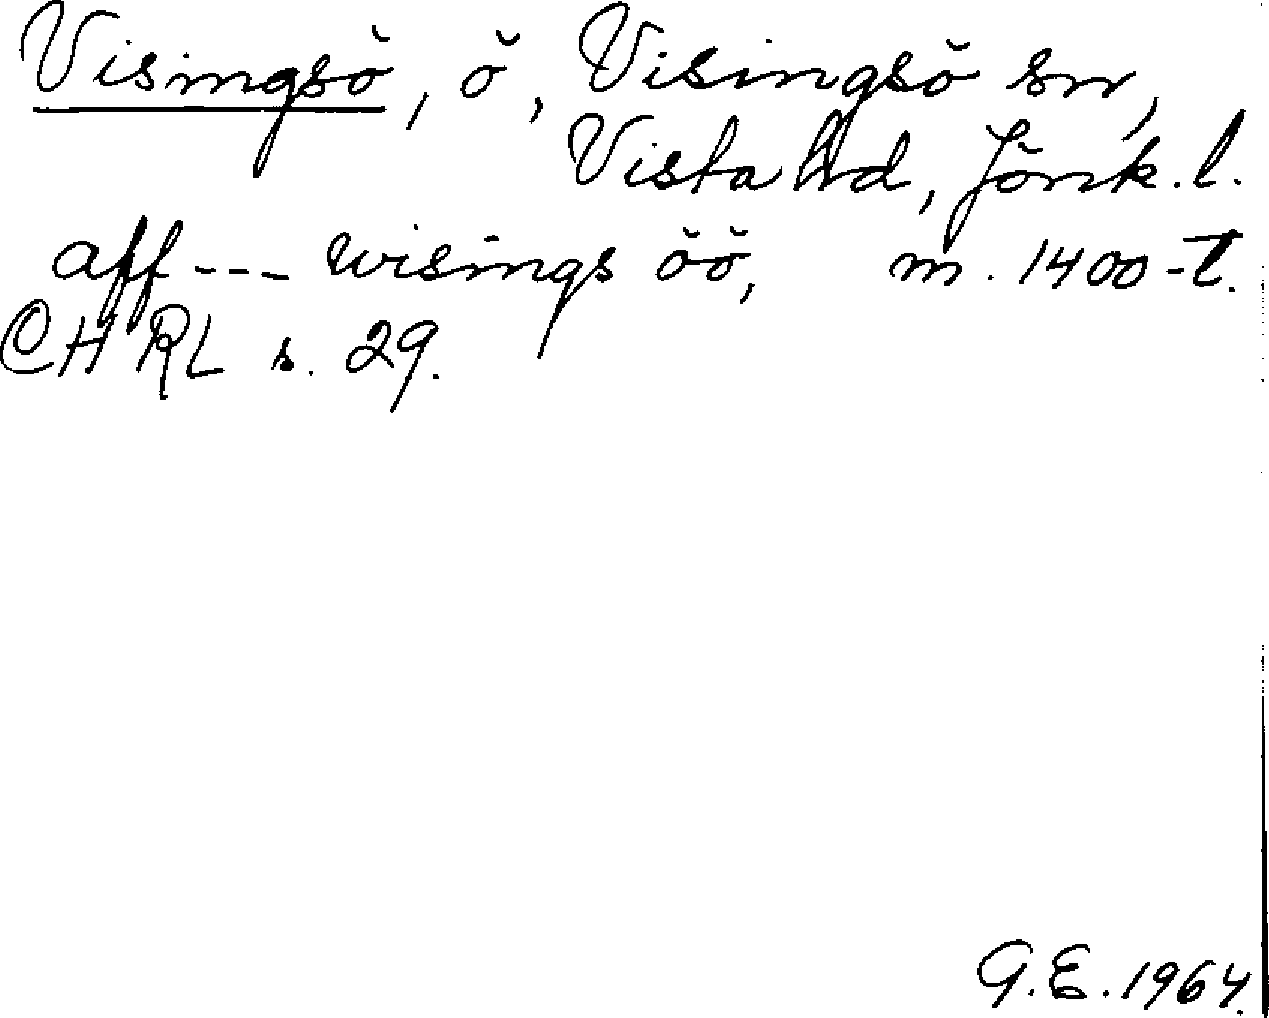 Visingsö, ö, Visingsö sn,
Vista hd, Jönk. l.
aff --- wisings öö, m. 1400-t.
CHRL s. 29.
G.E. 1964.